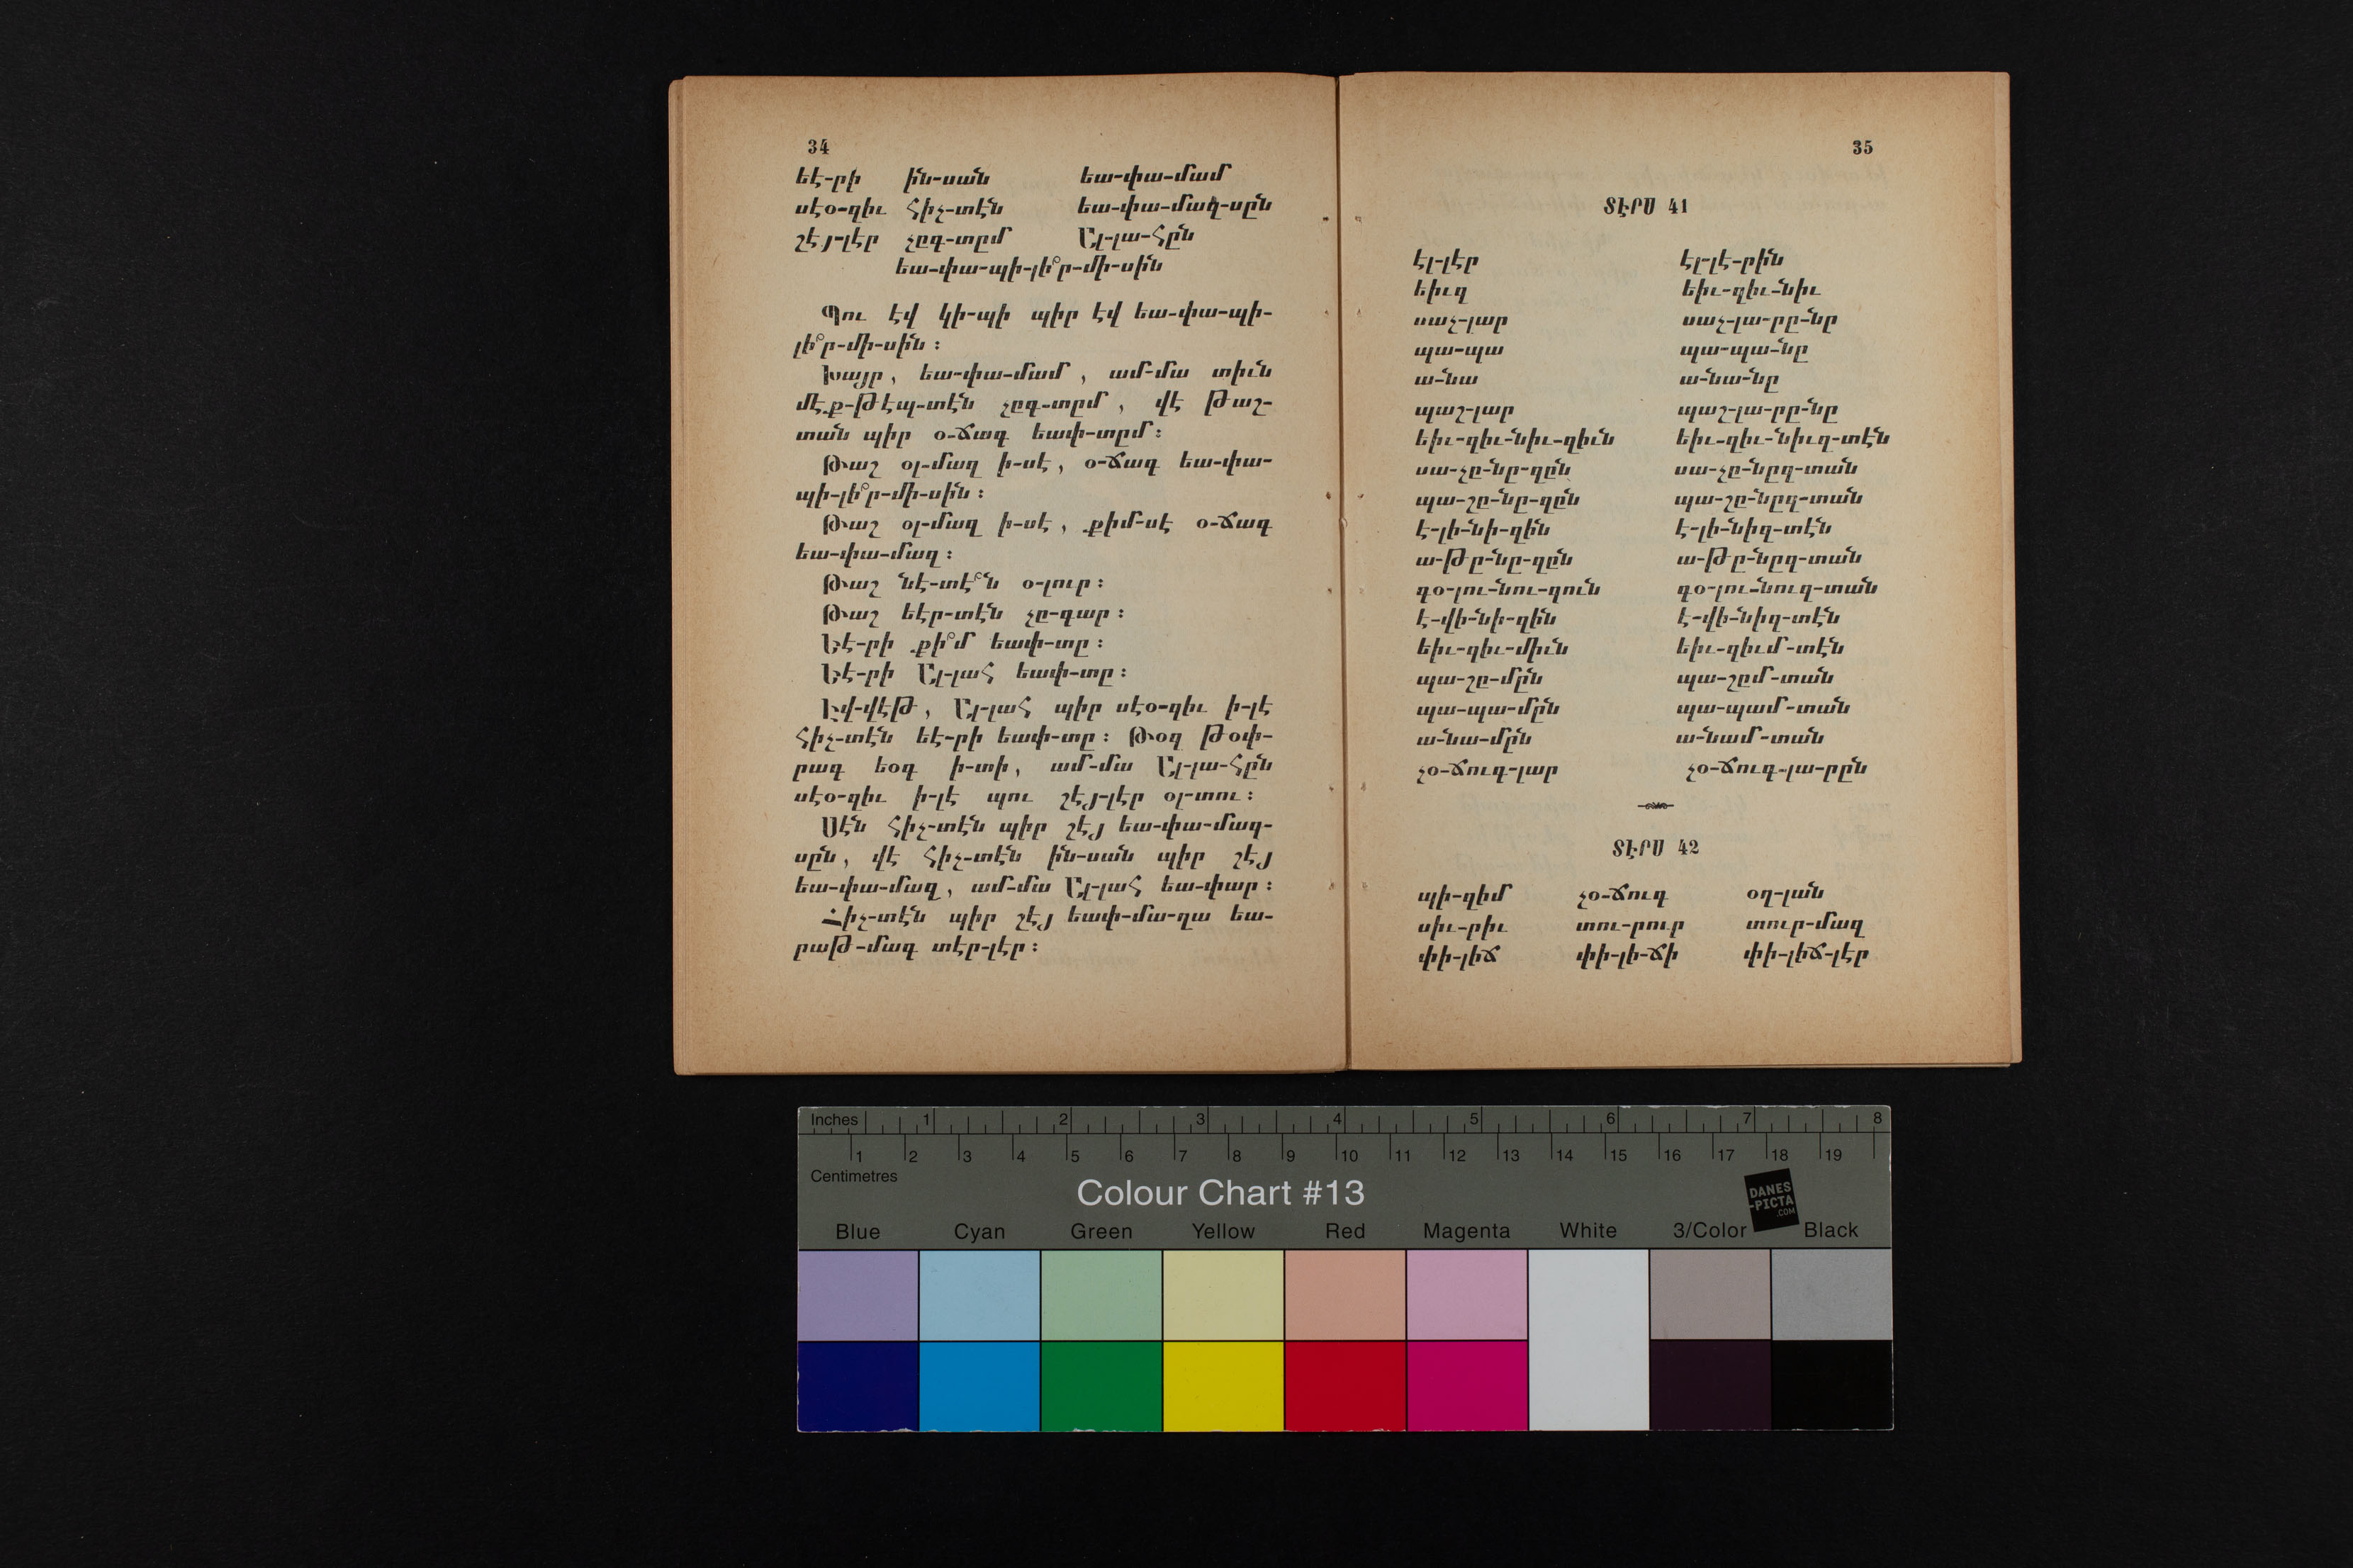 34
եէ-րի ին-սան եա-փա-մամ
սէօ-զիւ հիչ-տէն եա-փա-մազ-սըն
շէյ-լէր չըգ-տըմ Ալ-լա-հըն
եա-փա-պի-լե՞ր-մի-սին
Պու էվ կի-պի պիր էվ եա-փա-պի-
լե՞ր-մի-սին ։
Խայր , եա-փա-մամ , ամ-մա տիւն
մէք-թէպ-տէն չըգ-տըմ , վէ թաշ-
տան պիր օ-ճագ եափ-տըմ ։
Թաշ օլ-մազ ի-սէ , օ-ճագ եա-փա-
պի-լե՞ր-մի-սին ։
Թաշ օլ-մազ ի-սէ , քիմ-սէ օ-ճագ
եա-փա-մազ ։
Թաշ նէ-տէ՞ն օ-լուր ։
Թաշ եէր-տէն չը-գար ։
Եէ-րի քի՞մ եափ-տը ։
Եէ-րի Ալ-լահ եափ-տը ։
Էվ-վէթ , Ալ-լահ պիր սէօ-զիւ ի-լէ
հիչ-տէն եէ-րի եափ-տը ։ Թօզ թօփ-
րագ եօգ ի-տի , ամ-մա Ալ-լա-հըն
սէօ-զիւ ի-լէ պու շէյ-լէր օլ-տու ։
Սէն հիչ-տէն պիր շէյ եա-փա-մազ-
սըն , վէ հիչ-տէն ին-սան պիր շէյ
եա-փա-մազ , ամ-մա Ալ-լահ եա-փար ։
Հիչ-տէն պիր շէյ եափ-մա-ղա եա-
րաթ-մագ տէր-լէր ։
35
ՏԷՐՍ 41
էլ-լէր էլ-լէ-րին
եիւզ եիւ-զիւ-նիւ
սաչ-լար սաչ-լա-րը-նը
պա-պա պա-պա-նը
ա-նա ա-նա-նը
պաշ-լար պաշ-լա-րը-նը
եիւ-զիւ-նիւ-զիւն եիւ-զիւ-նիւզ-տէն
սա-չը-նը-զըն սա-չը-նըզ-տան
պա-շը-նը-զըն պա-շը-նըզ-տան
է-լի-նի-զին է-լի-նիզ-տէն
ա-թը-նը-զըն ա-թը-նըզ-տան
գօ-լու-նու-զուն գօ-լու-նուզ-տան
է-վի-նի-զին է-վի-նիզ-տէն
եիւ-զիւ-միւն եիւ-զիւմ-տէն
պա-շը-մըն պա-շըմ-տան
պա-պա-մըն պա-պամ-տան
ա-նա-մըն ա-նամ-տան
չօ-ճուգ-լար չօ-ճուգ-լա-րըն
ՏԷՐՍ 42
պի-զիմ չօ-ճուգ օղ-լան
սիւ-րիւ տու-րուր տուր-մազ
փի-լիճ փի-լի-ճի փի-լիճ-լէր
Inches 1 2 3 4 5 6 7 8
1 2 3 4 5 6 7 8 9 10 11 12 13 14 15 16 17 18 19
Centimetres
Colour Chart #13
DANES
-PICTA
.COM
Blue Cyan Green Yellow Red Magenta White 3/Color Black